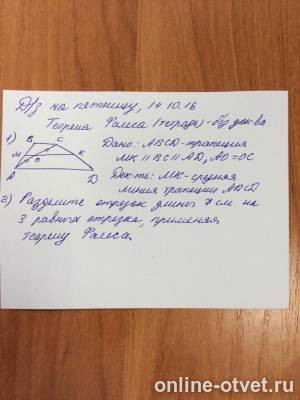 Д/з на пятницу, 14.10.16
Теорема Фалеса (тетрадь) - без док-ва
1) B C Дано: ABCD - трапеция
M O K MK || BC || AD, AO = OC
A D Док-ть: MK - средняя
линия трапеции ABCD
2) Разделите отрезок длиной 7 см на
3 равных отрезка, применяя
теорему Фалеса.
online-otvet.ru